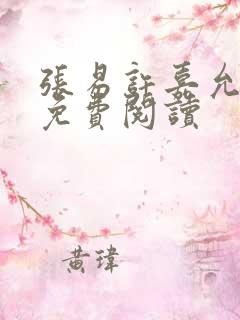 張易許嘉允
免費閱讀
黃瑋